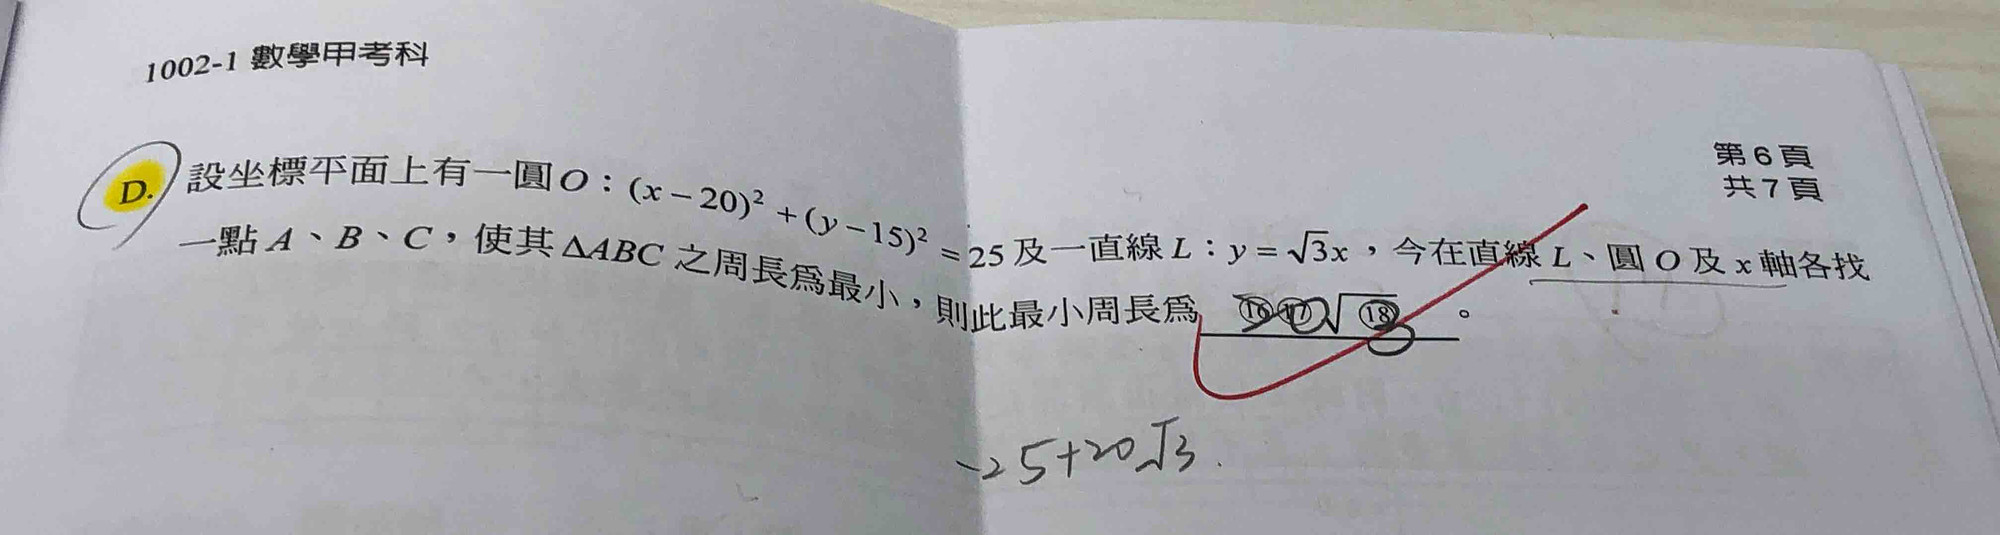 1002-1 數學甲考科
第 6 頁
共 7 頁
D. 設坐標平面上有一圓 O：(x－20)²＋(y－15)²＝25 及一直線 L：y＝√3x，今在直線 L、圓 O 及 x 軸各找
一點 A、B、C，使其 ΔABC 之周長為最小，則此最小周長為 ⑯⑰√⑱ 。
-25+20√3.